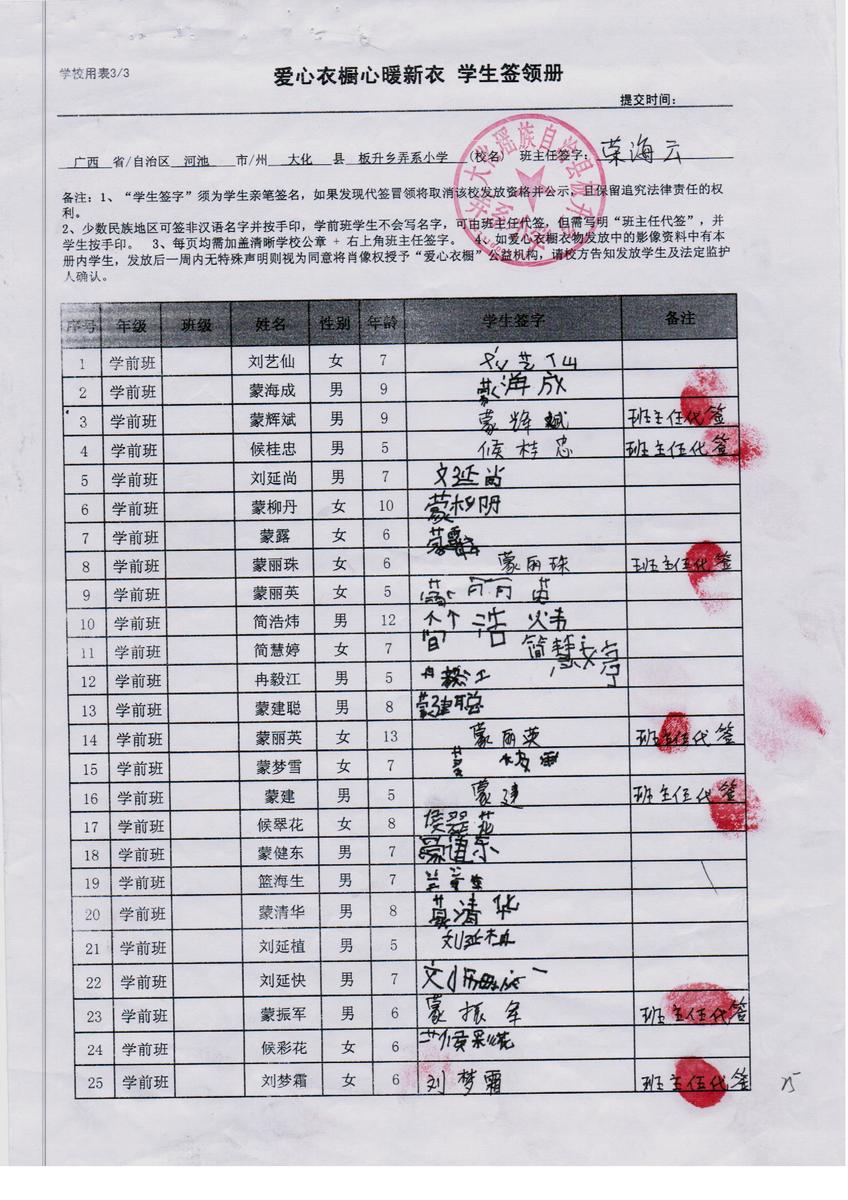 学校用表3/3
爱心衣橱心暖新衣 学生签领册
提交时间：
广西 省/自治区 河池 市/州 大化 县 板升乡弄系小学 (校名) 班主任签字： 荣海云
备注：1、“学生签字”须为学生亲笔签名，如果发现代签冒领将取消该校发放资格并公示，且保留追究法律责任的权
利。
2、少数民族地区可签非汉语名字并按手印，学前班学生不会写名字，可由班主任代签，但需写明“班主任代签”，并
学生按手印。 3、每页均需加盖清晰学校公章 + 右上角班主任签字。 4、如爱心衣橱衣物发放中的影像资料中有本
册内学生，发放后一周内无特殊声明则视为同意将肖像权授予“爱心衣橱”公益机构，请校方告知发放学生及法定监护
人确认。
序号 年级 班级 姓名 性别 年龄 学生签字 备注
1 学前班 刘艺仙 女 7 刘艺仙
2 学前班 蒙海成 男 9 蒙海成
3 学前班 蒙辉斌 男 9 蒙辉斌 班主任代签
4 学前班 候桂忠 男 5 候桂忠 班主任代签
5 学前班 刘延尚 男 7 文延尚
6 学前班 蒙柳丹 女 10 蒙柳
7 学前班 蒙露 女 6
8 学前班 蒙丽珠 女 6 蒙丽珠 班主任代签
9 学前班 蒙丽英 女 5
10 学前班 简浩炜 男 12 浩炜
11 学前班 简慧婷 女 7 简慧婷
12 学前班 冉毅江 男 5 冉毅江
13 学前班 蒙建聪 男 8 蒙建聪
14 学前班 蒙丽英 女 13 蒙丽英 班主任代签
15 学前班 蒙梦雪 女 7
16 学前班 蒙建 男 5 蒙建 班主任代签
17 学前班 候翠花 女 8 候翠花
18 学前班 蒙健东 男 7 蒙健东
19 学前班 篮海生 男 7
20 学前班 蒙清华 男 8 蒙清华
21 学前班 刘延植 男 5 刘延植
22 学前班 刘延快 男 7
23 学前班 蒙振军 男 6 蒙振军 班主任代签
24 学前班 候彩花 女 6 候彩花
25 学前班 刘梦霜 女 6 刘梦霜 班主任代签
25